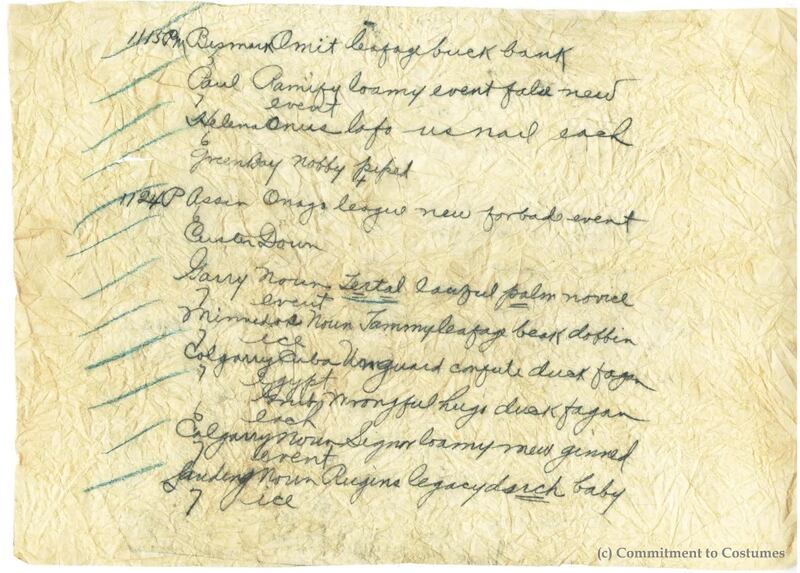 1113PM Bismark Omit leafage buck bank
Paul Ramify loamy event false new
event
Helena Onus lofo us nail each
Green Bay nobby piped
1124P Assin Onago league new forbade event
Custer Down
Garry Noun Tertal lawful palm novice
event
Minnedos Noun Jammy leafage beak dobbin
ice
Calgarry Cuba Unguard confute duck fagan
Egypt
Wrongful hugo duck fagan
each
Calgarry Noun Signor loamy new ginned
event
Landing Noun Rugins legacy duck baby
ice
(c) Commitment to Costumes